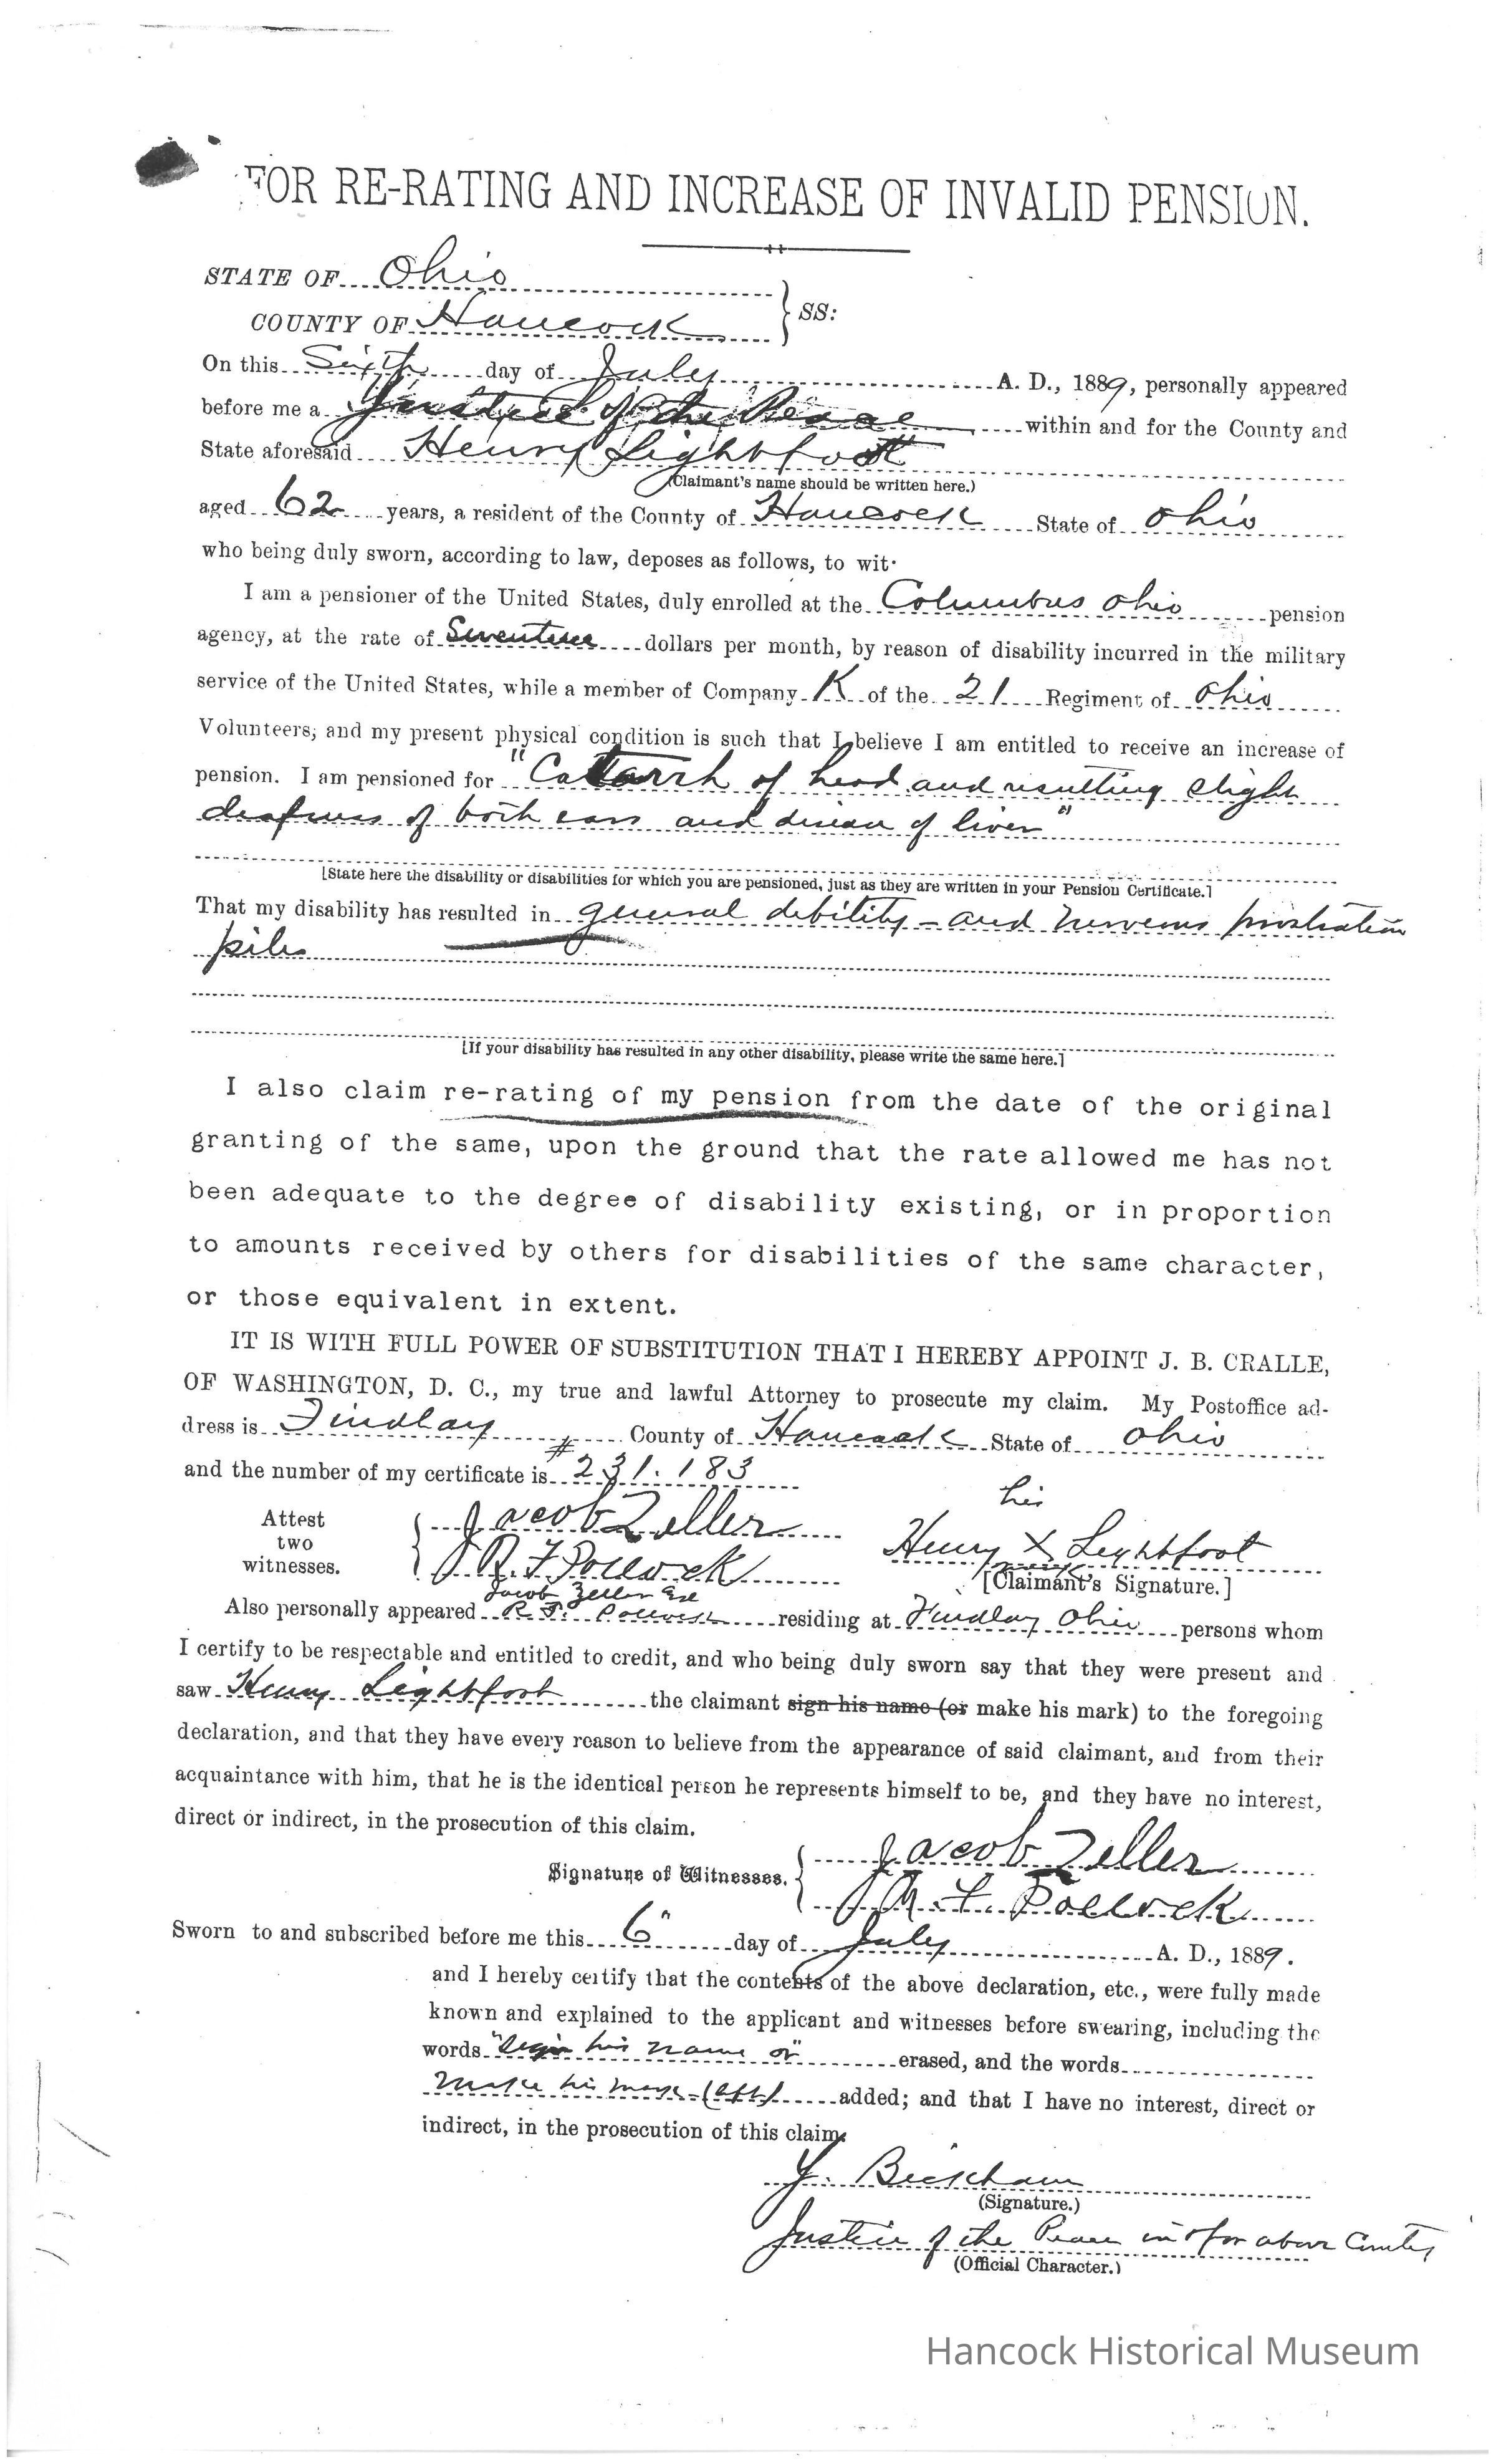 FOR RE-RATING AND INCREASE OF INVALID PENSION.
STATE OF Ohio
COUNTY OF Hancock } SS:
On this Sixth day of July A. D., 1889, personally appeared
before me a Justice of the Peace within and for the County and
State aforesaid Henry Lightfoot
(Claimant's name should be written here.)
aged 62 years, a resident of the County of Hancock State of Ohio
who being duly sworn, according to law, deposes as follows, to wit:
I am a pensioner of the United States, duly enrolled at the Columbus Ohio pension
agency, at the rate of Seventeen dollars per month, by reason of disability incurred in the military
service of the United States, while a member of Company K of the 21 Regiment of Ohio
Volunteers; and my present physical condition is such that I believe I am entitled to receive an increase of
pension. I am pensioned for "Catarrh of head and resulting slight
deafness of both ears and disease of liver"
[State here the disability or disabilities for which you are pensioned, just as they are written in your Pension Certificate.]
That my disability has resulted in general debility - and nervous prostration
piles
[If your disability has resulted in any other disability, please write the same here.]
I also claim re-rating of my pension from the date of the original
granting of the same, upon the ground that the rate allowed me has not
been adequate to the degree of disability existing, or in proportion
to amounts received by others for disabilities of the same character,
or those equivalent in extent.
IT IS WITH FULL POWER OF SUBSTITUTION THAT I HEREBY APPOINT J. B. CRALLE,
OF WASHINGTON, D. C., my true and lawful Attorney to prosecute my claim. My Postoffice ad-
dress is Findlay County of Hancock State of Ohio
and the number of my certificate is # 231.183
his
Attest
two
witnesses.
Jacob Zeller
R. F. Pollock
Henry X Lightfoot
mark
[Claimant's Signature.]
Jacob Zeller Esq
Also personally appeared R. F. Pollock residing at Findlay Ohio persons whom
I certify to be respectable and entitled to credit, and who being duly sworn say that they were present and
saw Henry Lightfoot the claimant sign his name (or make his mark) to the foregoing
declaration, and that they have every reason to believe from the appearance of said claimant, and from their
acquaintance with him, that he is the identical person he represents himself to be, and they have no interest,
direct or indirect, in the prosecution of this claim.
Signature of Witnesses.
Jacob Zeller
R. F. Pollock
Sworn to and subscribed before me this 6" day of July A. D., 1889.
and I hereby certify that the contents of the above declaration, etc., were fully made
known and explained to the applicant and witnesses before swearing, including the
words "sign his name or" erased, and the words
make his mark added; and that I have no interest, direct or
indirect, in the prosecution of this claim.
Y. Bickham
(Signature.)
Justice of the Peace in & for above County
(Official Character.)
Hancock Historical Museum